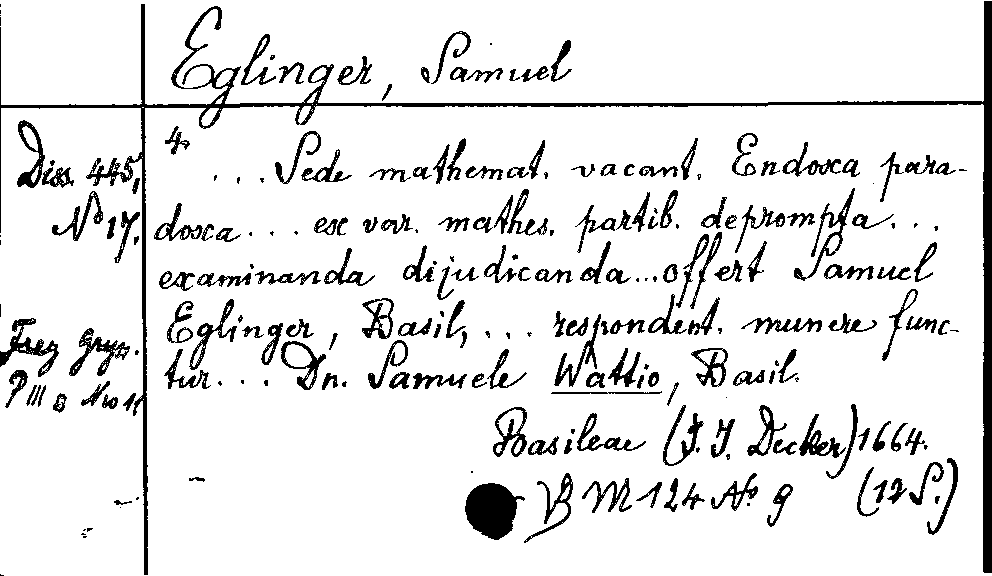 Eglinger, Samuel
Diss. 445,
No 17.
Frey Gryn.
P III B Nro 11
4°
... Sede mathemat. vacant. Endoxa para-
doxa ... ex var. mathes. partib. deprompta ...
examinanda dijudicanda ... offert Samuel
Eglinger, Basil, ... respondent. munere func-
tur ... Dn. Samuele Wattio, Basil.
Basileae (J. J. Decker) 1664.
B M 124 No 9 (12 S.)